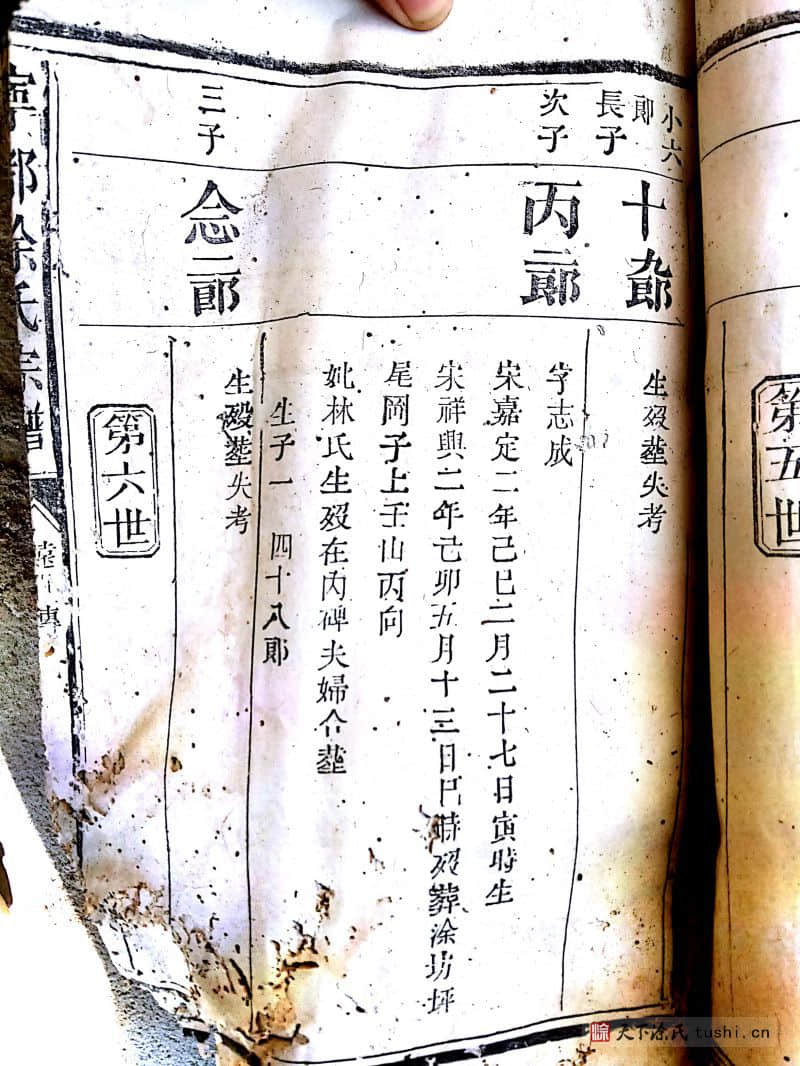 第五世
小六
郎
長子
十九郎
生歿塟失考
次子
丙二郎
字志成
宋嘉定二年己巳二月二十七日寅時生
宋祥興二年己卯五月十三日巳時歿葬涂坊坪
尾岡子上壬山丙向
妣林氏生歿在內碑夫婦合塟
生子一 四十八郎
三子
念二郎
生歿塟失考
第六世
寧都涂氏宗譜
傳
涂 天下涂氏 tushi.cn